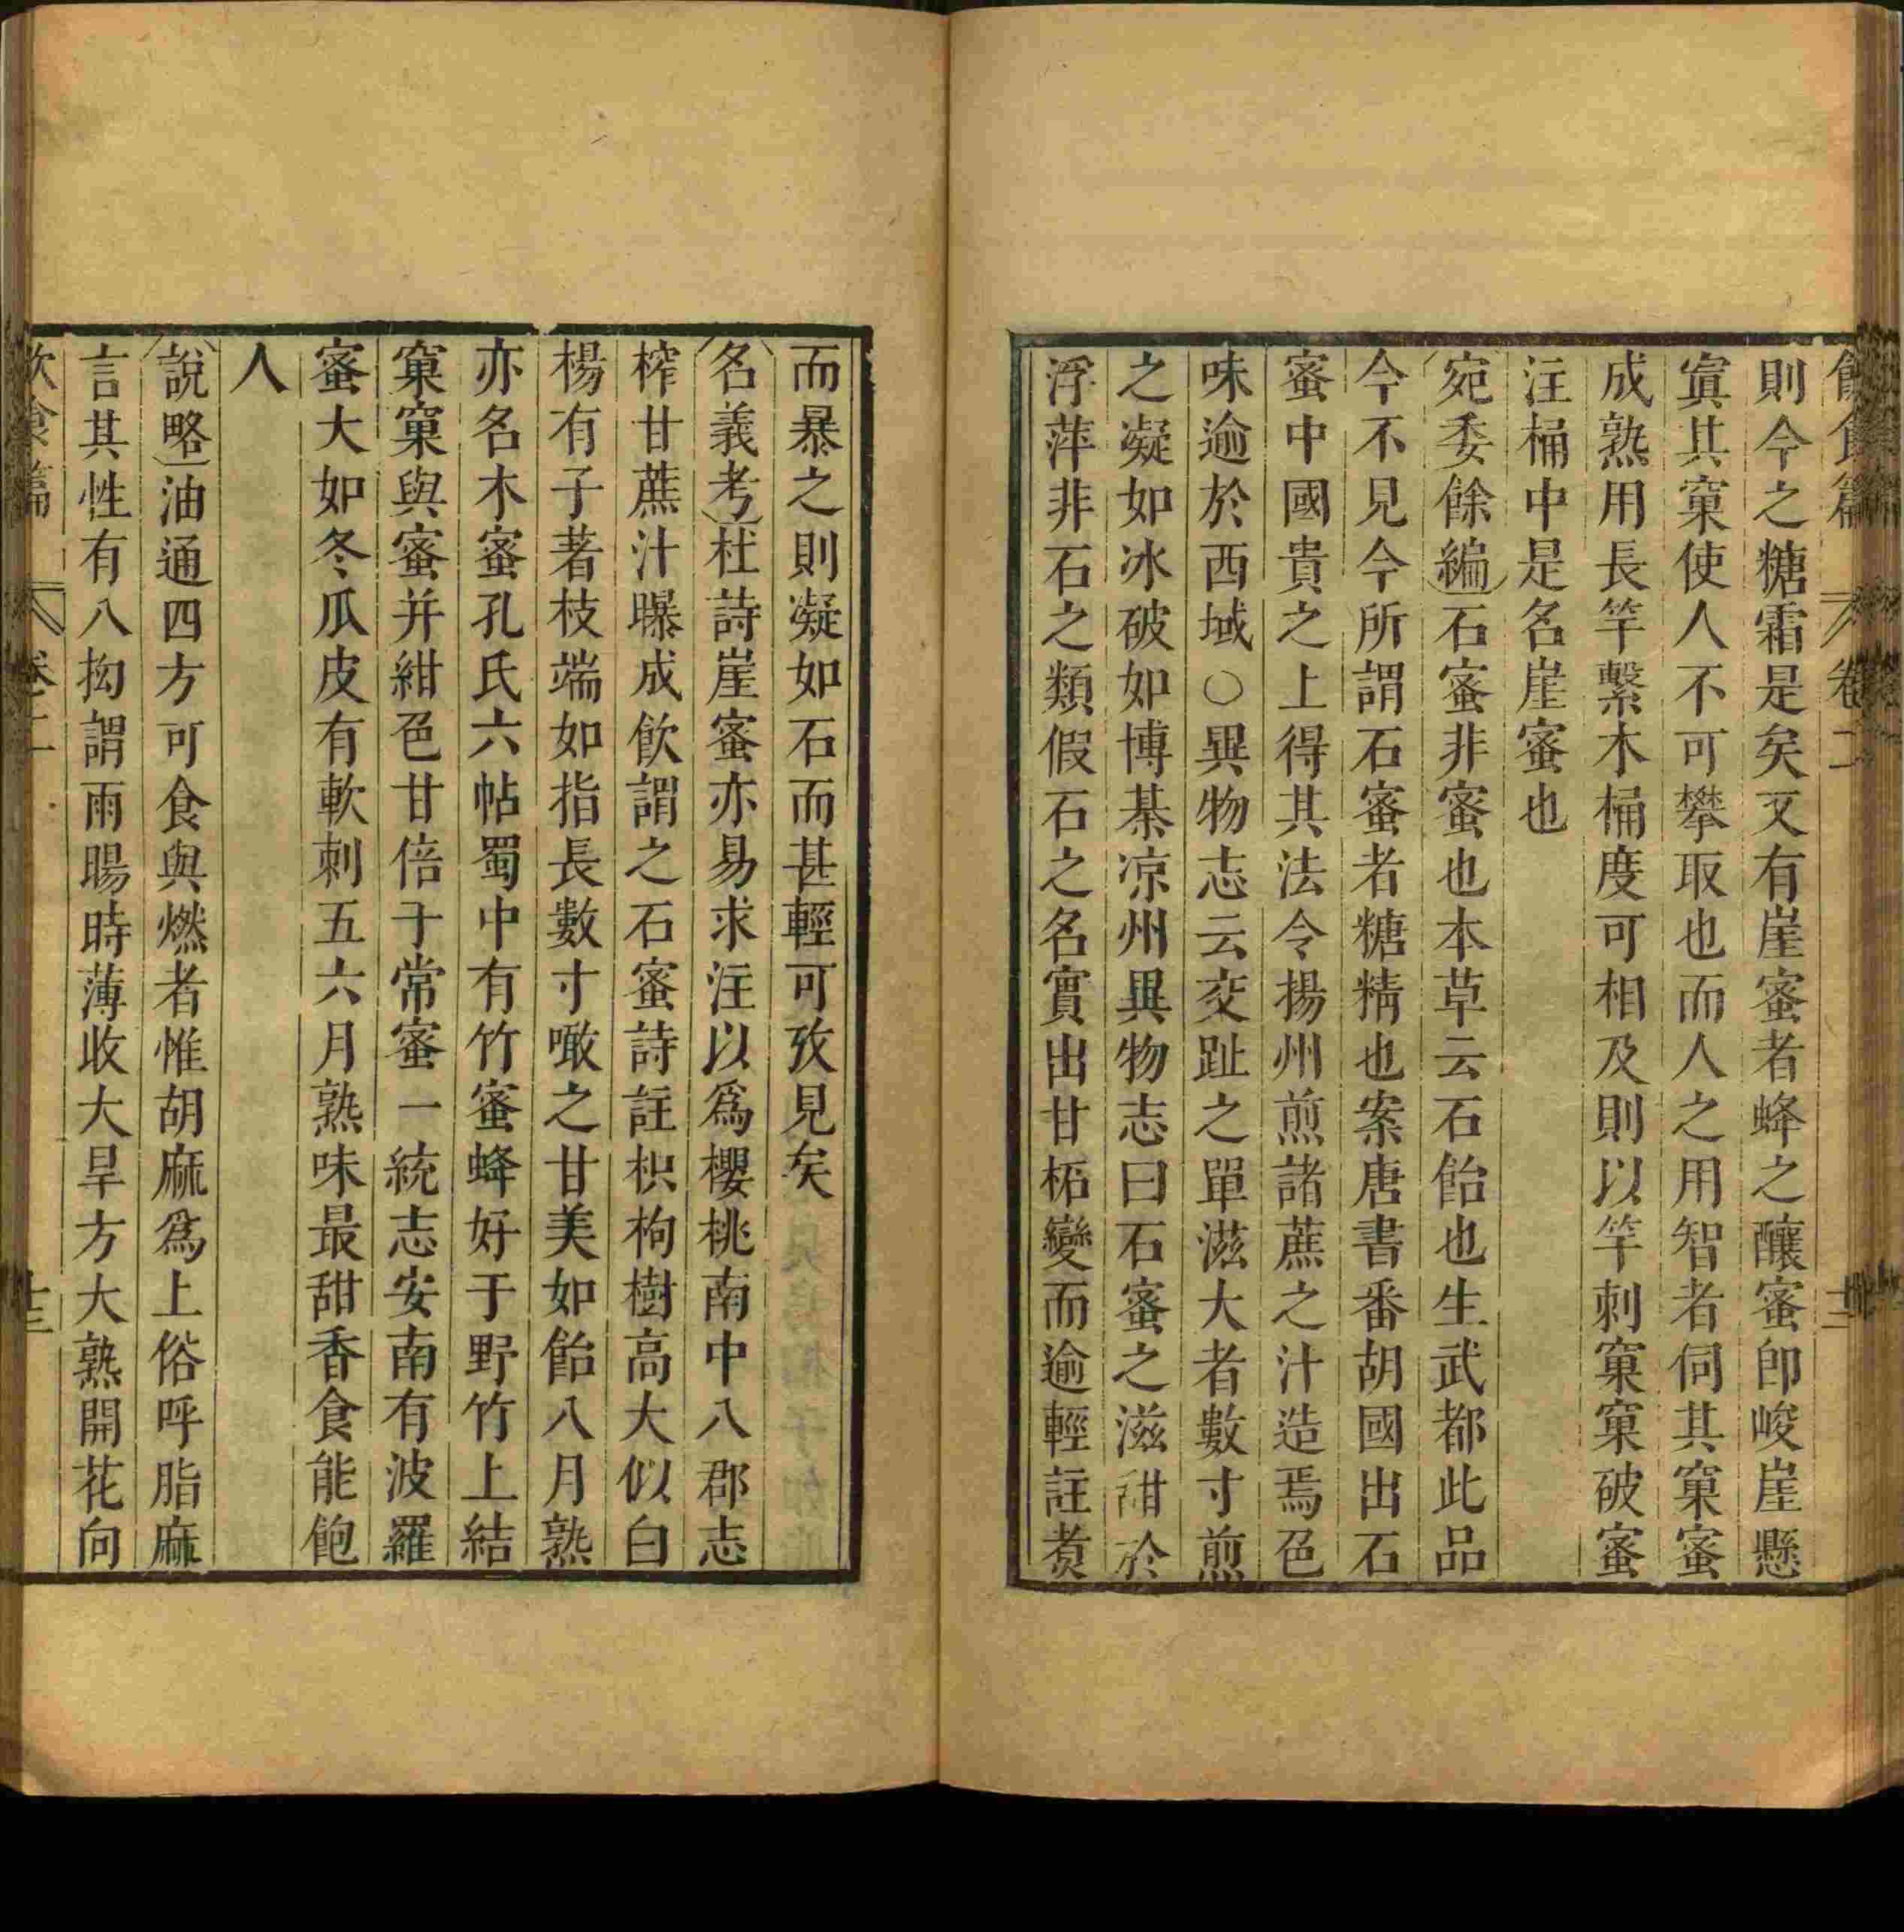 飲食篇 卷二 十二
則今之糖霜是矣又有崖蜜者蜂之釀蜜卽峻崖懸
寘其窠使人不可攀取也而人之用智者伺其窠蜜
成熟用長竿繫木桶度可相及則以竿刺窠窠破蜜
注桶中是名崖蜜也
宛委餘編石蜜非蜜也本草云石飴也生武都此品
今不見今所謂石蜜者糖精也案唐書番胡國出石
蜜中國貴之上得其法令揚州煎諸蔗之汁造焉色
味逾於西域○異物志云交趾之單滋大者數寸煎
之凝如冰破如博棊凉州異物志曰石蜜之滋甜於
浮萍非石之類假石之名實出甘柘變而逾輕註煑
而暴之則凝如石而甚輕可攷見矣
名義考杜詩崖蜜亦易求注以爲櫻桃南中八郡志
榨甘蔗汁曝成飮謂之石蜜詩註枳枸樹高大似白
楊有子著枝端如指長數寸噉之甘美如飴八月熟
亦名木蜜孔氏六帖蜀中有竹蜜蜂好于野竹上結
窠窠與蜜并紺色甘倍于常蜜一統志安南有波羅
蜜大如冬瓜皮有軟刺五六月熟味最甜香食能飽
人
說略油通四方可食與燃者惟胡麻爲上俗呼脂麻
言其性有八拗謂雨暘時薄收大旱方大熟開花向
飲食篇 卷二 十三